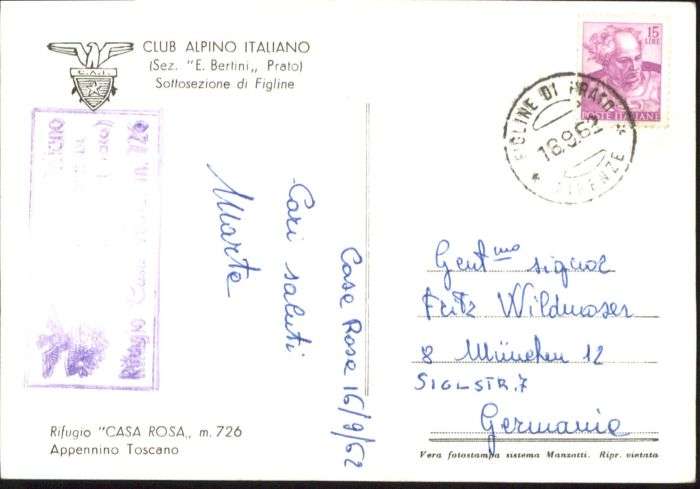 CLUB ALPINO ITALIANO
(Sez. "E. Bertini„ Prato)
Sottosezione di Figline
C.A.I.
Rifugio Casa Rosa m. 726
Case Rose 16/9/62
Cari saluti
Marta
Rifugio "CASA ROSA„ m. 726
Appennino Toscano
15
LIRE
POSTE ITALIANE
FIGLINE DI PRATO
18.9.62
* FIRENZE *
Gent.mo signor
Fritz Wildmoser
8 München 12
SIGLSTR. 7
Germania
Vera fotostampa sistema Manzotti. Ripr. vietata